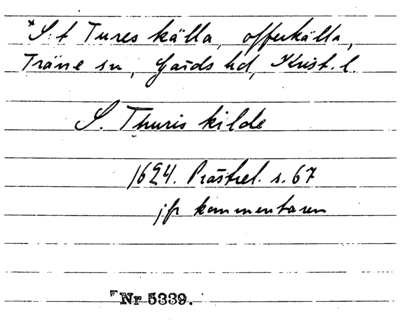 *S:t Tures källa, offerkälla,
Träne sn, Gärds hd, Krist. l.
S. Thuris kilde
1624. Prästrel. s. 67
jfr kommentaren
Nr 5339.